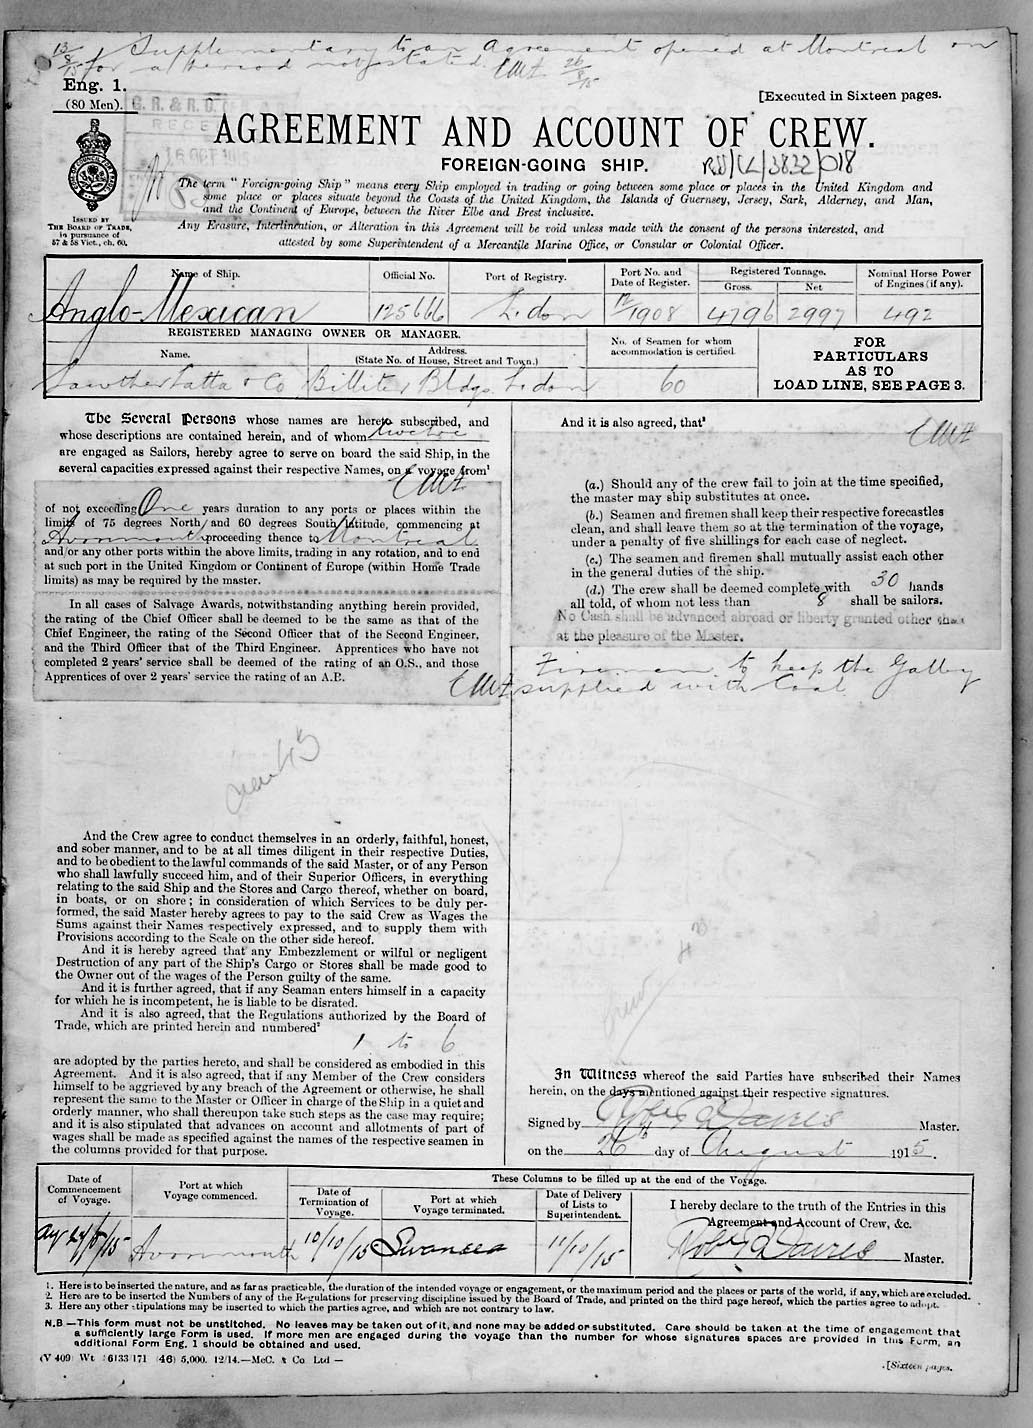 13/8/15 Supplementary to an Agreement opened at Montreal on
for a period not stated. 26/8/15
Eng. 1.
(80 Men).
G. R. & R. O.
[Executed in Sixteen pages.
AGREEMENT AND ACCOUNT OF CREW.
FOREIGN-GOING SHIP.
RSS/CL/3832/018
The term "Foreign-going Ship" means every Ship employed in trading or going between some place or places in the United Kingdom and
some place or places situate beyond the Coasts of the United Kingdom, the Islands of Guernsey, Jersey, Sark, Alderney, and Man,
and the Continent of Europe, between the River Elbe and Brest inclusive.
Any Erasure, Interlineation, or Alteration in this Agreement will be void unless made with the consent of the persons interested, and
attested by some Superintendent of a Mercantile Marine Office, or Consular or Colonial Officer.
ISSUED BY
THE BOARD OF TRADE,
in pursuance of
57 & 58 Vict., ch. 60.
Name of Ship. Official No. Port of Registry. Port No. and Date of Register. Registered Tonnage. Gross. Net Nominal Horse Power of Engines (if any).
Anglo-Mexican 125666 L.don 12/1908 4796 2997 492
REGISTERED MANAGING OWNER OR MANAGER.
Name. Address. (State No. of House, Street and Town.)
No. of Seamen for whom accommodation is certified.
Lawther Latta & Co Billiter Bldgs. L.don 60
FOR
PARTICULARS
AS TO
LOAD LINE, SEE PAGE 3.
The Several Persons whose names are hereto subscribed, and
whose descriptions are contained herein, and of whom twelve
are engaged as Sailors, hereby agree to serve on board the said Ship, in the
several capacities expressed against their respective Names, on a voyage from¹
of not exceeding One years duration to any ports or places within the
limits of 75 degrees North and 60 degrees South latitude, commencing at
Avonmouth proceeding thence to Montreal
and/or any other ports within the above limits, trading in any rotation, and to end
at such port in the United Kingdom or Continent of Europe (within Home Trade
limits) as may be required by the master.
In all cases of Salvage Awards, notwithstanding anything herein provided,
the rating of the Chief Officer shall be deemed to be the same as that of the
Chief Engineer, the rating of the Second Officer that of the Second Engineer,
and the Third Officer that of the Third Engineer. Apprentices who have not
completed 2 years' service shall be deemed of the rating of an O.S., and those
Apprentices of over 2 years' service the rating of an A.B.
And the Crew agree to conduct themselves in an orderly, faithful, honest,
and sober manner, and to be at all times diligent in their respective Duties,
and to be obedient to the lawful commands of the said Master, or of any Person
who shall lawfully succeed him, and of their Superior Officers, in everything
relating to the said Ship and the Stores and Cargo thereof, whether on board,
in boats, or on shore; in consideration of which Services to be duly per-
formed, the said Master hereby agrees to pay to the said Crew as Wages the
Sums against their Names respectively expressed, and to supply them with
Provisions according to the Scale on the other side hereof.
And it is hereby agreed that any Embezzlement or wilful or negligent
Destruction of any part of the Ship's Cargo or Stores shall be made good to
the Owner out of the wages of the Person guilty of the same.
And it is further agreed, that if any Seaman enters himself in a capacity
for which he is incompetent, he is liable to be disrated.
And it is also agreed, that the Regulations authorized by the Board of
Trade, which are printed herein and numbered²
1 to 6
are adopted by the parties hereto, and shall be considered as embodied in this
Agreement. And it is also agreed, that if any Member of the Crew considers
himself to be aggrieved by any breach of the Agreement or otherwise, he shall
represent the same to the Master or Officer in charge of the Ship in a quiet and
orderly manner, who shall thereupon take such steps as the case may require;
and it is also stipulated that advances on account and allotments of part of
wages shall be made as specified against the names of the respective seamen in
the columns provided for that purpose.
And it is also agreed, that³
(a.) Should any of the crew fail to join at the time specified,
the master may ship substitutes at once.
(b.) Seamen and firemen shall keep their respective forecastles
clean, and shall leave them so at the termination of the voyage,
under a penalty of five shillings for each case of neglect.
(c.) The seamen and firemen shall mutually assist each other
in the general duties of the ship.
(d.) The crew shall be deemed complete with 30 hands
all told, of whom not less than 8 shall be sailors.
No Cash shall be advanced abroad or liberty granted other than
at the pleasure of the Master.
Firemen to keep the Galley
supplied with Coal
In Witness whereof the said Parties have subscribed their Names
herein, on the days mentioned against their respective signatures.
Signed by Robt Davies Master.
on the 26th day of August 1915.
These Columns to be filled up at the end of the Voyage.
Date of Commencement of Voyage. Port at which Voyage commenced. Date of Termination of Voyage. Port at which Voyage terminated. Date of Delivery of Lists to Superintendent. I hereby declare to the truth of the Entries in this Agreement and Account of Crew, &c.
Avonmouth 10/10/15 Swansea 11/10/15 Master.
1. Here is to be inserted the nature, and as far as practicable, the duration of the intended voyage or engagement, or the maximum period and the places or parts of the world, if any, which are excluded.
2. Here are to be inserted the Numbers of any of the Regulations for preserving discipline issued by the Board of Trade, and printed on the third page hereof, which the parties agree to adopt.
3. Here any other stipulations may be inserted to which the parties agree, and which are not contrary to law.
N.B.—This form must not be unstitched. No leaves may be taken out of it, and none may be added or substituted. Care should be taken at the time of engagement that
a sufficiently large Form is used. If more men are engaged during the voyage than the number for whose signatures spaces are provided in this Form, an
additional Form Eng. 1 should be obtained and used.
(V 409) Wt 6133/171 (46) 5,000. 12/14.—McC. & Co Ltd—
[Sixteen pages.